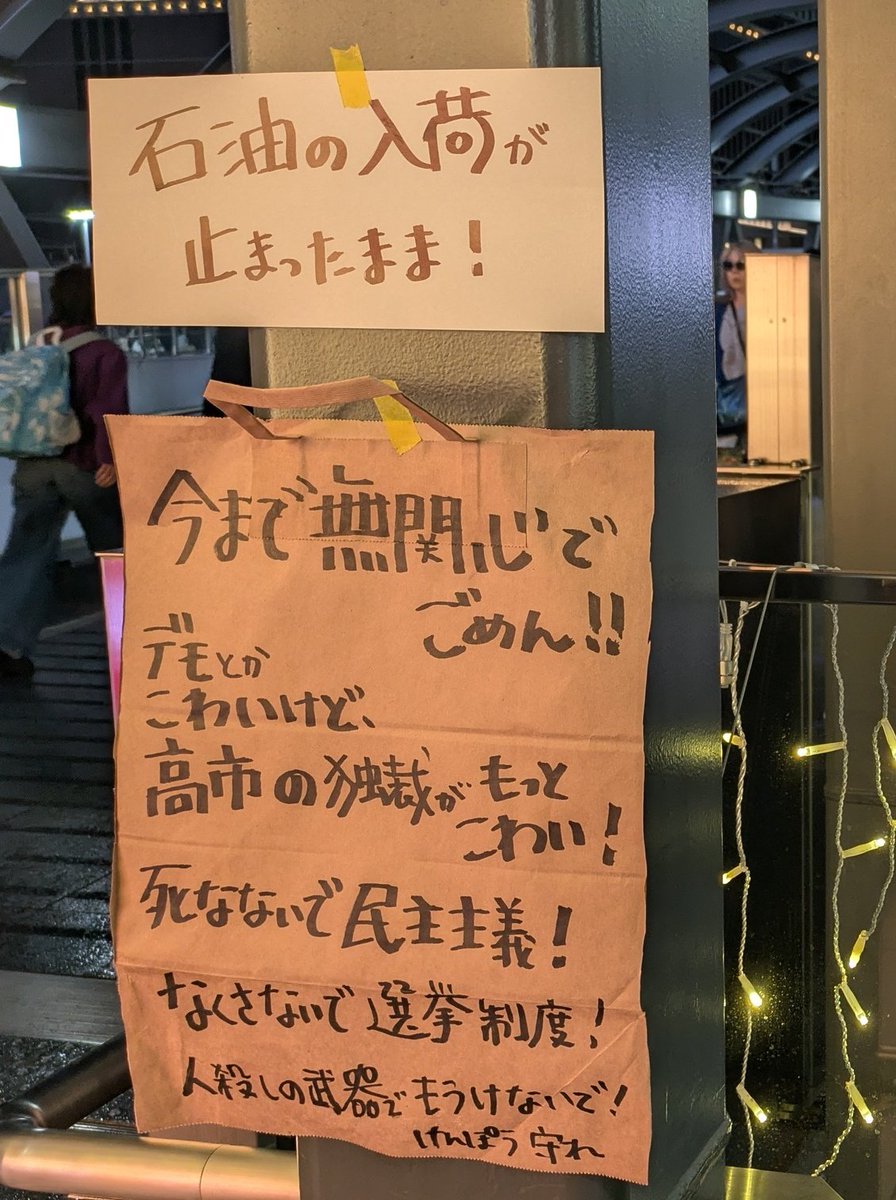 石油の入荷が
止まったまま！
今まで無関心で
ごめん!!
デモとか
こわいけど、
高市の独裁がもっと
こわい！
死なないで民主主義！
なくさないで選挙制度！
人殺しの武器でもうけないで！
けんぽう守れ